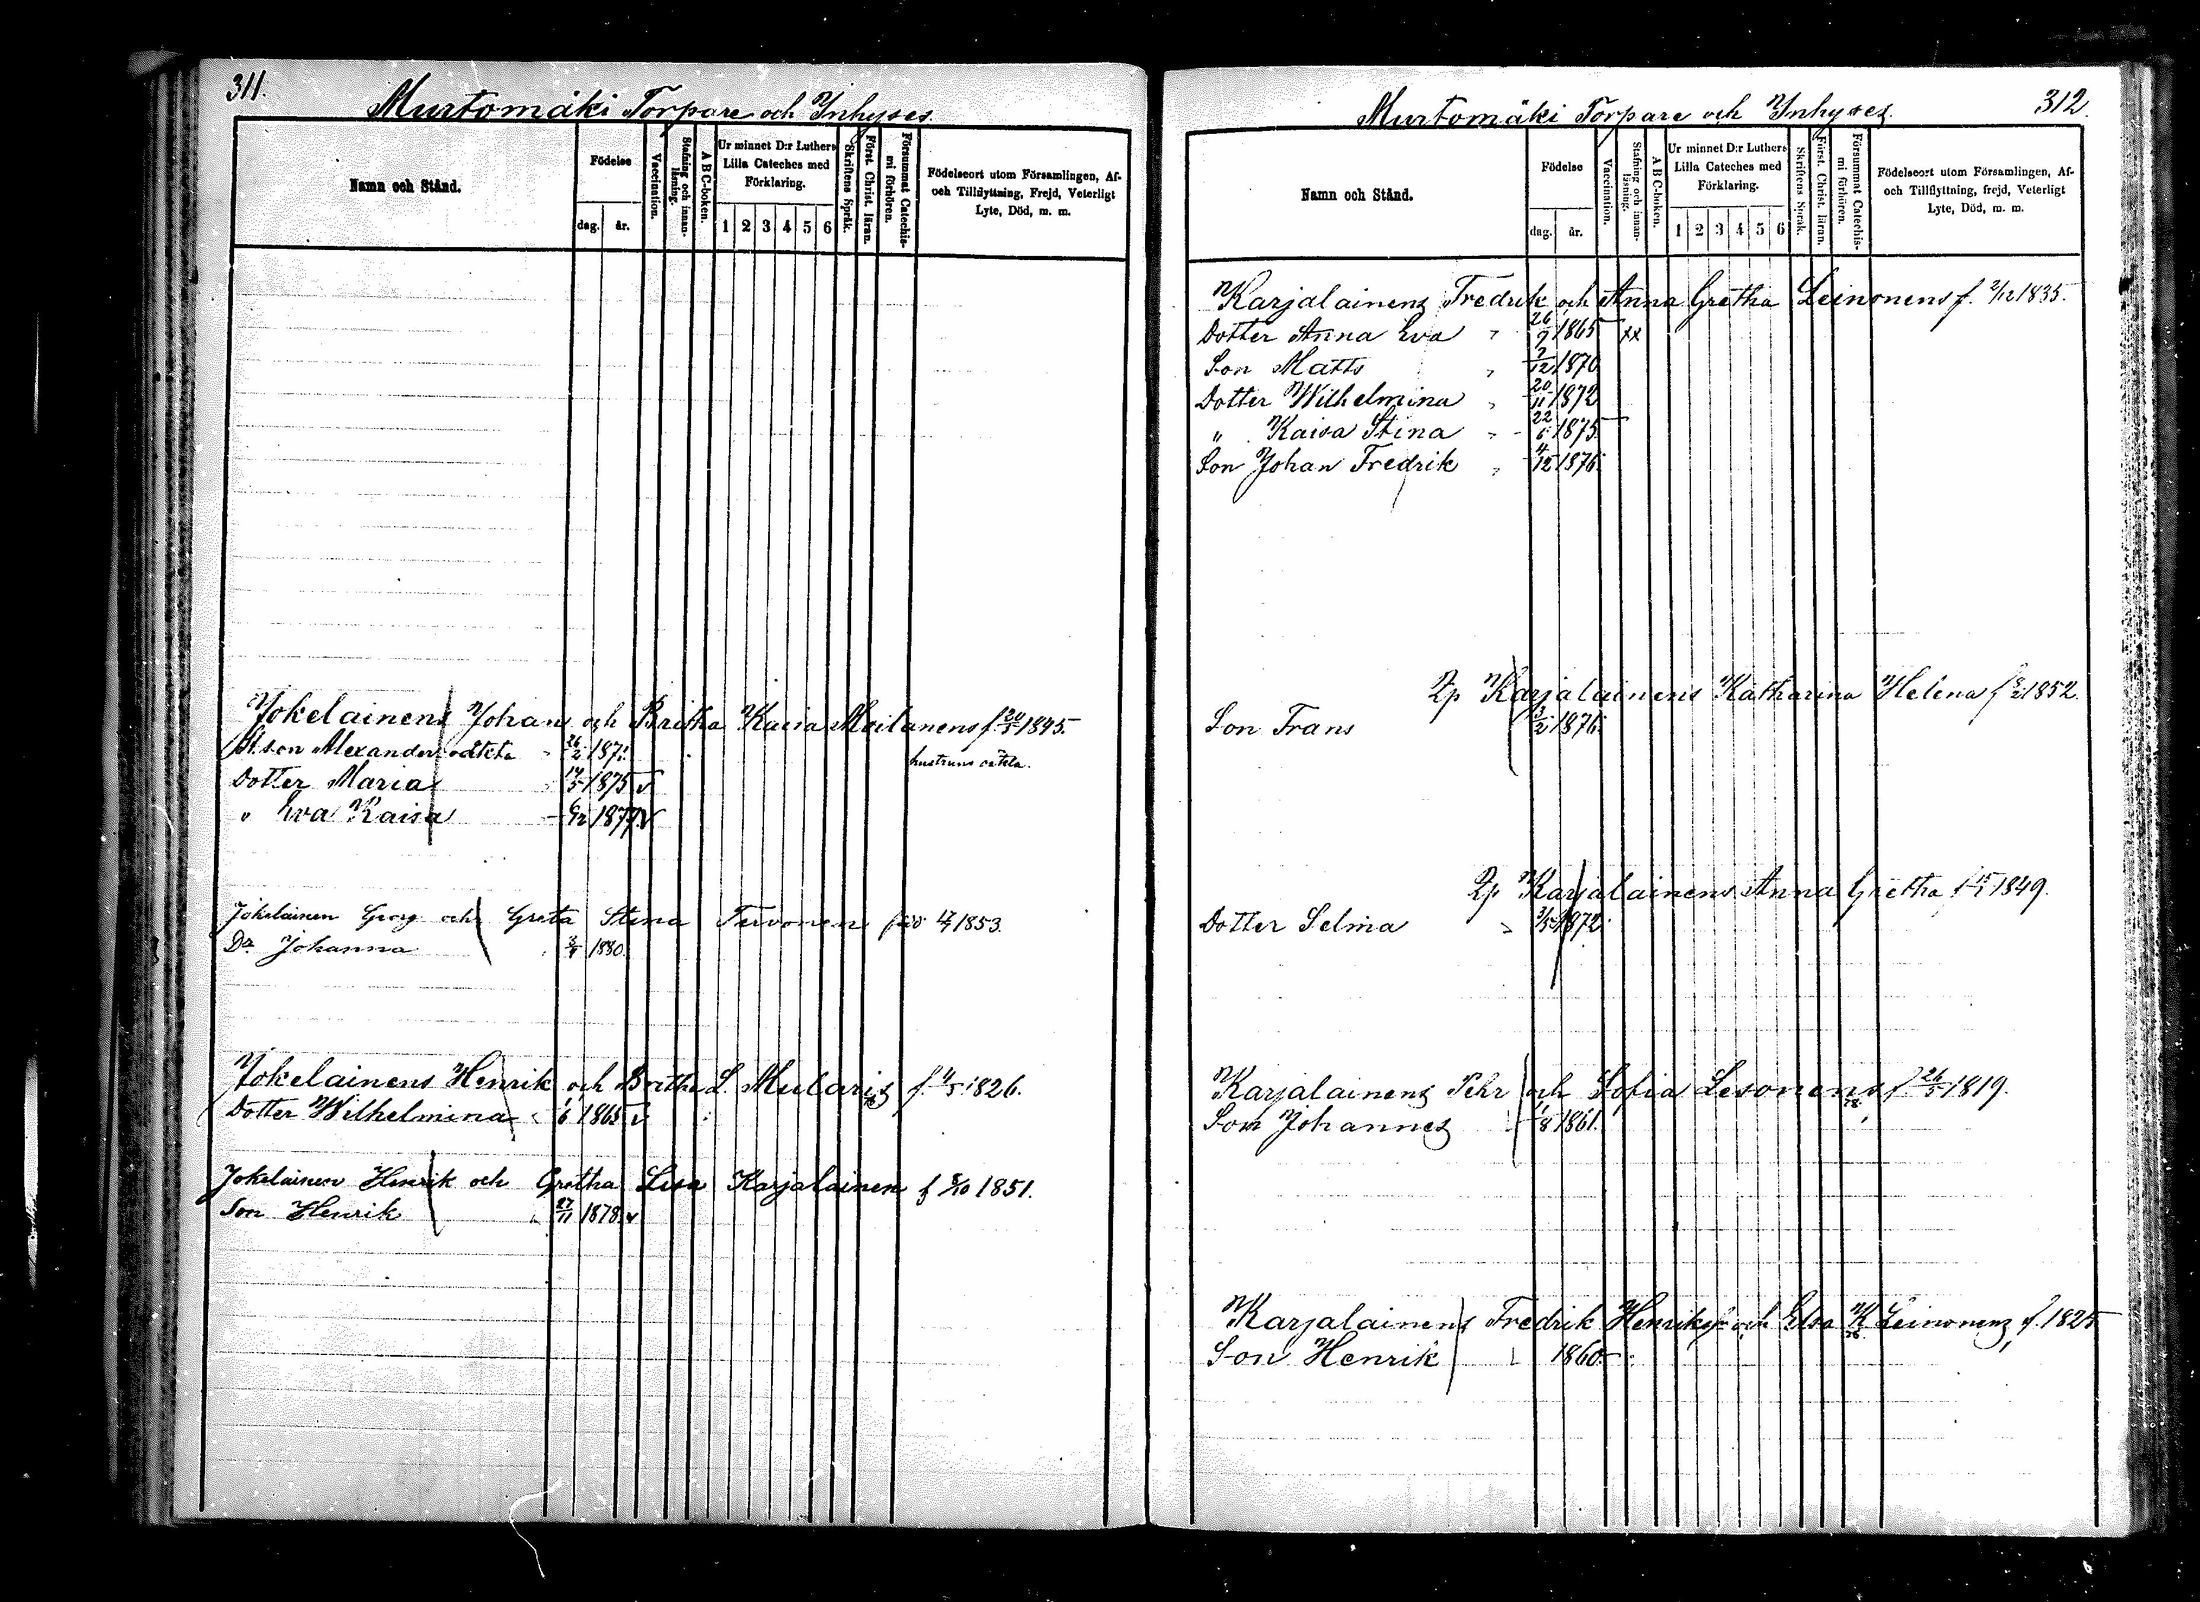 311.
Murtomäki Torpare och Inhyses.
Namn och Stånd.
Födelse
dag. år.
Vaccination.
Stafning och innanläsning.
ABC-boken.
Ur minnet D:r Luthers Lilla Cateches med Förklaring.
1 2 3 4 5 6
Skriftens Språk.
Först. Christ. läran.
Försummat Catechismi förhören.
Födelseort utom Församlingen, Af- och Tillflyttning, Frejd, Veterligt Lyte, Död, m. m.
Jokelainens Johan och Britha Kaisa Moilanens f. 20/5 1845.
St. son Alexander oäkta 26/2 187 hustruns oäkta.
Dotter Maria 14/5 1875 v
" Eva Kaisa 6/12 1877. v
Jokelainen Georg och Greta Stina Tervonen född 1853.
Dr Johanna 1880.
Jokelainens Henrik och Britha L. Mularis f. 4/5 1826.
Dotter Wilhelmina 1/6 1865 v
Jokelainen Henrik och Gretha Lisa Karjalainen f 1851.
Son Henrik 27/11 1878. v
312.
Murtomäki Torpare och Inhyses.
Namn och Stånd.
Födelse
dag. år.
Vaccination.
Stafning och innanläsning.
ABC-boken.
Ur minnet D:r Luthers Lilla Cateches med Förklaring.
1 2 3 4 5 6
Skriftens Språk.
Först. Christ. läran.
Försummat Catechismi förhören.
Födelseort utom Församlingen, Af- och Tillflyttning, frejd, Veterligt Lyte, Död, m. m.
Karjalainens Fredrik och Anna Gretha Leinonens f. 2/12 1835.
Dotter Anna Eva " 26/9 1865 xx
Son Matts " 7/12 1870
Dotter Wilhelmina " 20/11 1872
" Kaisa Stina " 22/6 1875.
Son Johan Fredrik " 4/12 1876.
Qp Karjalainens Katharina Helena f. 1852.
Son Frans 3/2 1876.
Qp Karjalainens Anna Gretha f. 15/1 1849.
Dotter Selma " 1872.
Karjalainens Pehr och Sofia Lesonens f. 26/5 1819.
Son Johannes 1/8 1861.
Karjalainens Fredrik Henriks. och Elsa K. Leinonens, f. 1825
Son Henrik 1860.